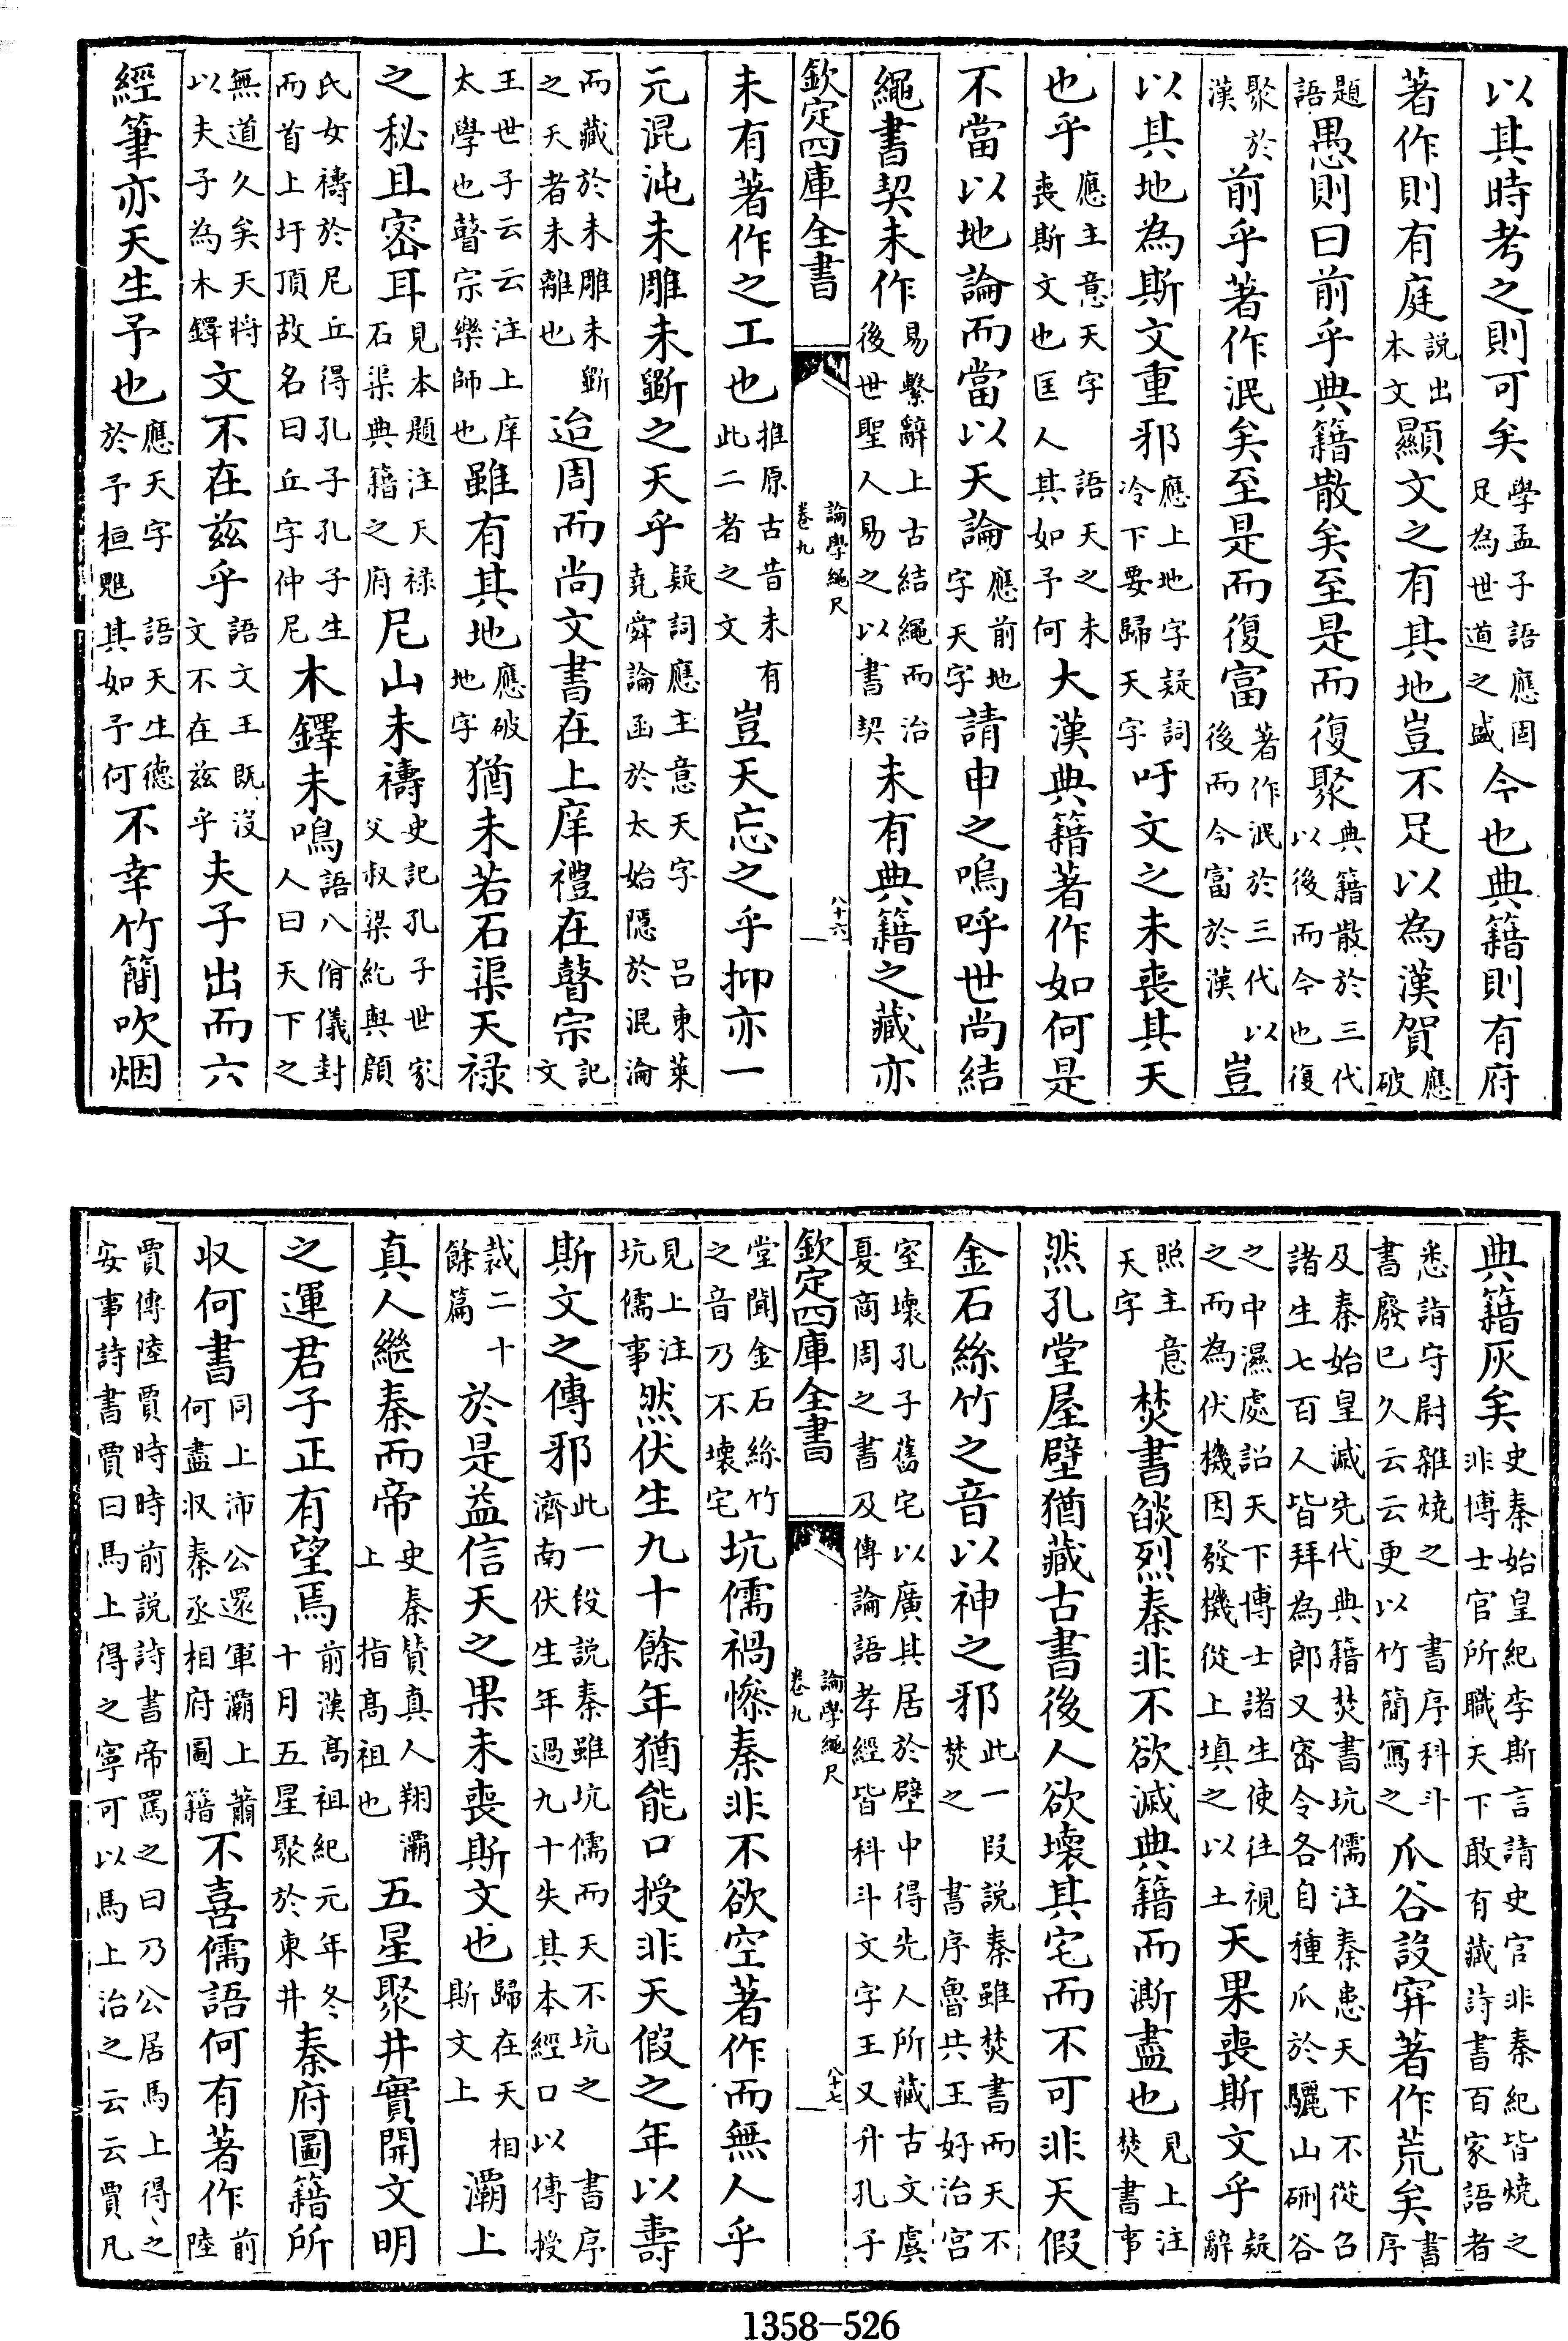 以其時考之則可矣學孟子語應固足為世道之盛今也典籍則有府
著作則有庭説出本文顯文之有其地豈不足以為漢賀應破
題語愚則曰前乎典籍散矣至是而復聚典籍散於三代以後而今也復
聚於漢前乎著作泯矣至是而復富著作泯於三代以後而今富於漢豈
以其地為斯文重邪應上地字疑詞冷下要歸天字吁文之未喪其天
也乎應主意天字喪斯文也匡人語天之未其如予何大漢典籍著作如何是
不當以地論而當以天論應前地字天字請申之嗚呼世尚結
繩書契未作易繫辭上古結繩而治後世聖人易之以書契未有典籍之藏亦
欽定四庫全書
論學繩尺
卷九
八十六
未有著作之工也推原古昔未有此二者之文豈天忘之乎抑亦一
元混沌未雕未斵之天乎疑詞應主意天字呂東萊堯舜論函於太始隱於混淪
而藏於未雕未斵之天者未離也迨周而尚文書在上庠禮在瞽宗記文
王世子云云注上庠太學也瞽宗樂師也雖有其地應破地字猶未若石渠天禄
之秘且密耳見本題注天禄石渠典籍之府尼山未禱史記孔子世家父叔梁紇與顔
氏女禱於尼丘得孔子孔子生而首上圩頂故名曰丘字仲尼木鐸未鳴語八佾儀封人曰天下之
無道久矣天將以夫子為木鐸文不在兹乎語文王既没文不在兹乎夫子出而六
經筆亦天生予也應天字語天生德於予桓魋其如予何不幸竹簡吹烟
典籍灰矣史秦始皇紀李斯言請史官非秦紀皆燒之非博士官所職天下敢有藏詩書百家語者
悉詣守尉雜燒之書序科斗書廢已久云云更以竹簡寫之瓜谷設穽著作荒矣書序
及秦始皇滅先代典籍焚書坑儒注秦患天下不從召諸生七百人皆拜為郎又密令各自種瓜於驪山硎谷
之中濕處詔天下博士諸生使往視之而為伏機因發機從上填之以土天果喪斯文乎疑辭
照主意天字焚書燄烈秦非不欲滅典籍而澌盡也見上注焚書事
然孔堂屋壁猶藏古書後人欲壞其宅而不可非天假
金石絲竹之音以神之邪此一段説秦雖焚書而天不焚之書序魯共王好治宫
室壞孔子舊宅以廣其居於壁中得先人所藏古文虞夏商周之書及傳論語孝經皆科斗文字王又升孔子
欽定四庫全書
論學繩尺
卷九
八十七
堂聞金石絲竹之音乃不壞宅坑儒禍慘秦非不欲空著作而無人乎
見上注坑儒事然伏生九十餘年猶能口授非天假之年以壽
斯文之傳邪此一段説秦雖坑儒而天不坑之書序濟南伏生年過九十失其本經口以傳授
裁二十餘篇於是益信天之果未喪斯文也歸在天相斯文上灞上
真人繼秦而帝史秦贊真人翔灞上指髙祖也五星聚井實開文明
之運君子正有望焉前漢髙祖紀元年冬十月五星聚於東井秦府圖籍所
収何書同上沛公還軍灞上蕭何盡収秦丞相府圖籍不喜儒語何有著作前陸
賈傳陸賈時時前説詩書帝罵之曰乃公居馬上得之安事詩書賈曰馬上得之寧可以馬上治之云云賈凡
1358-526